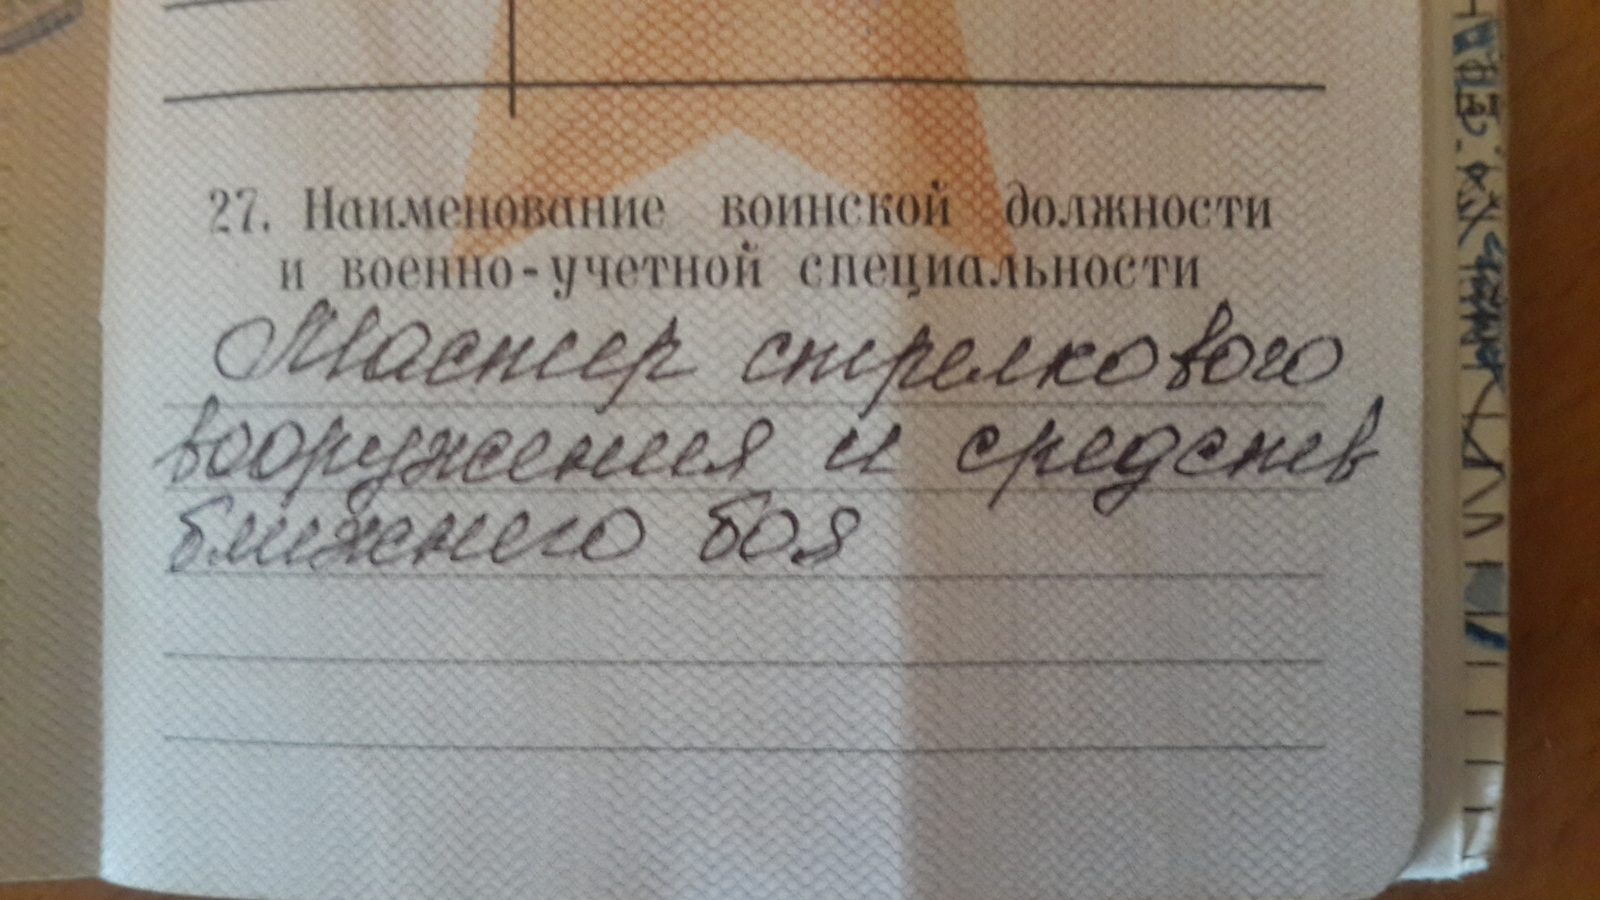 27. Наименование воинской должности
и военно-учетной специальности
Мастер стрелкового
вооружения и средств
ближнего боя